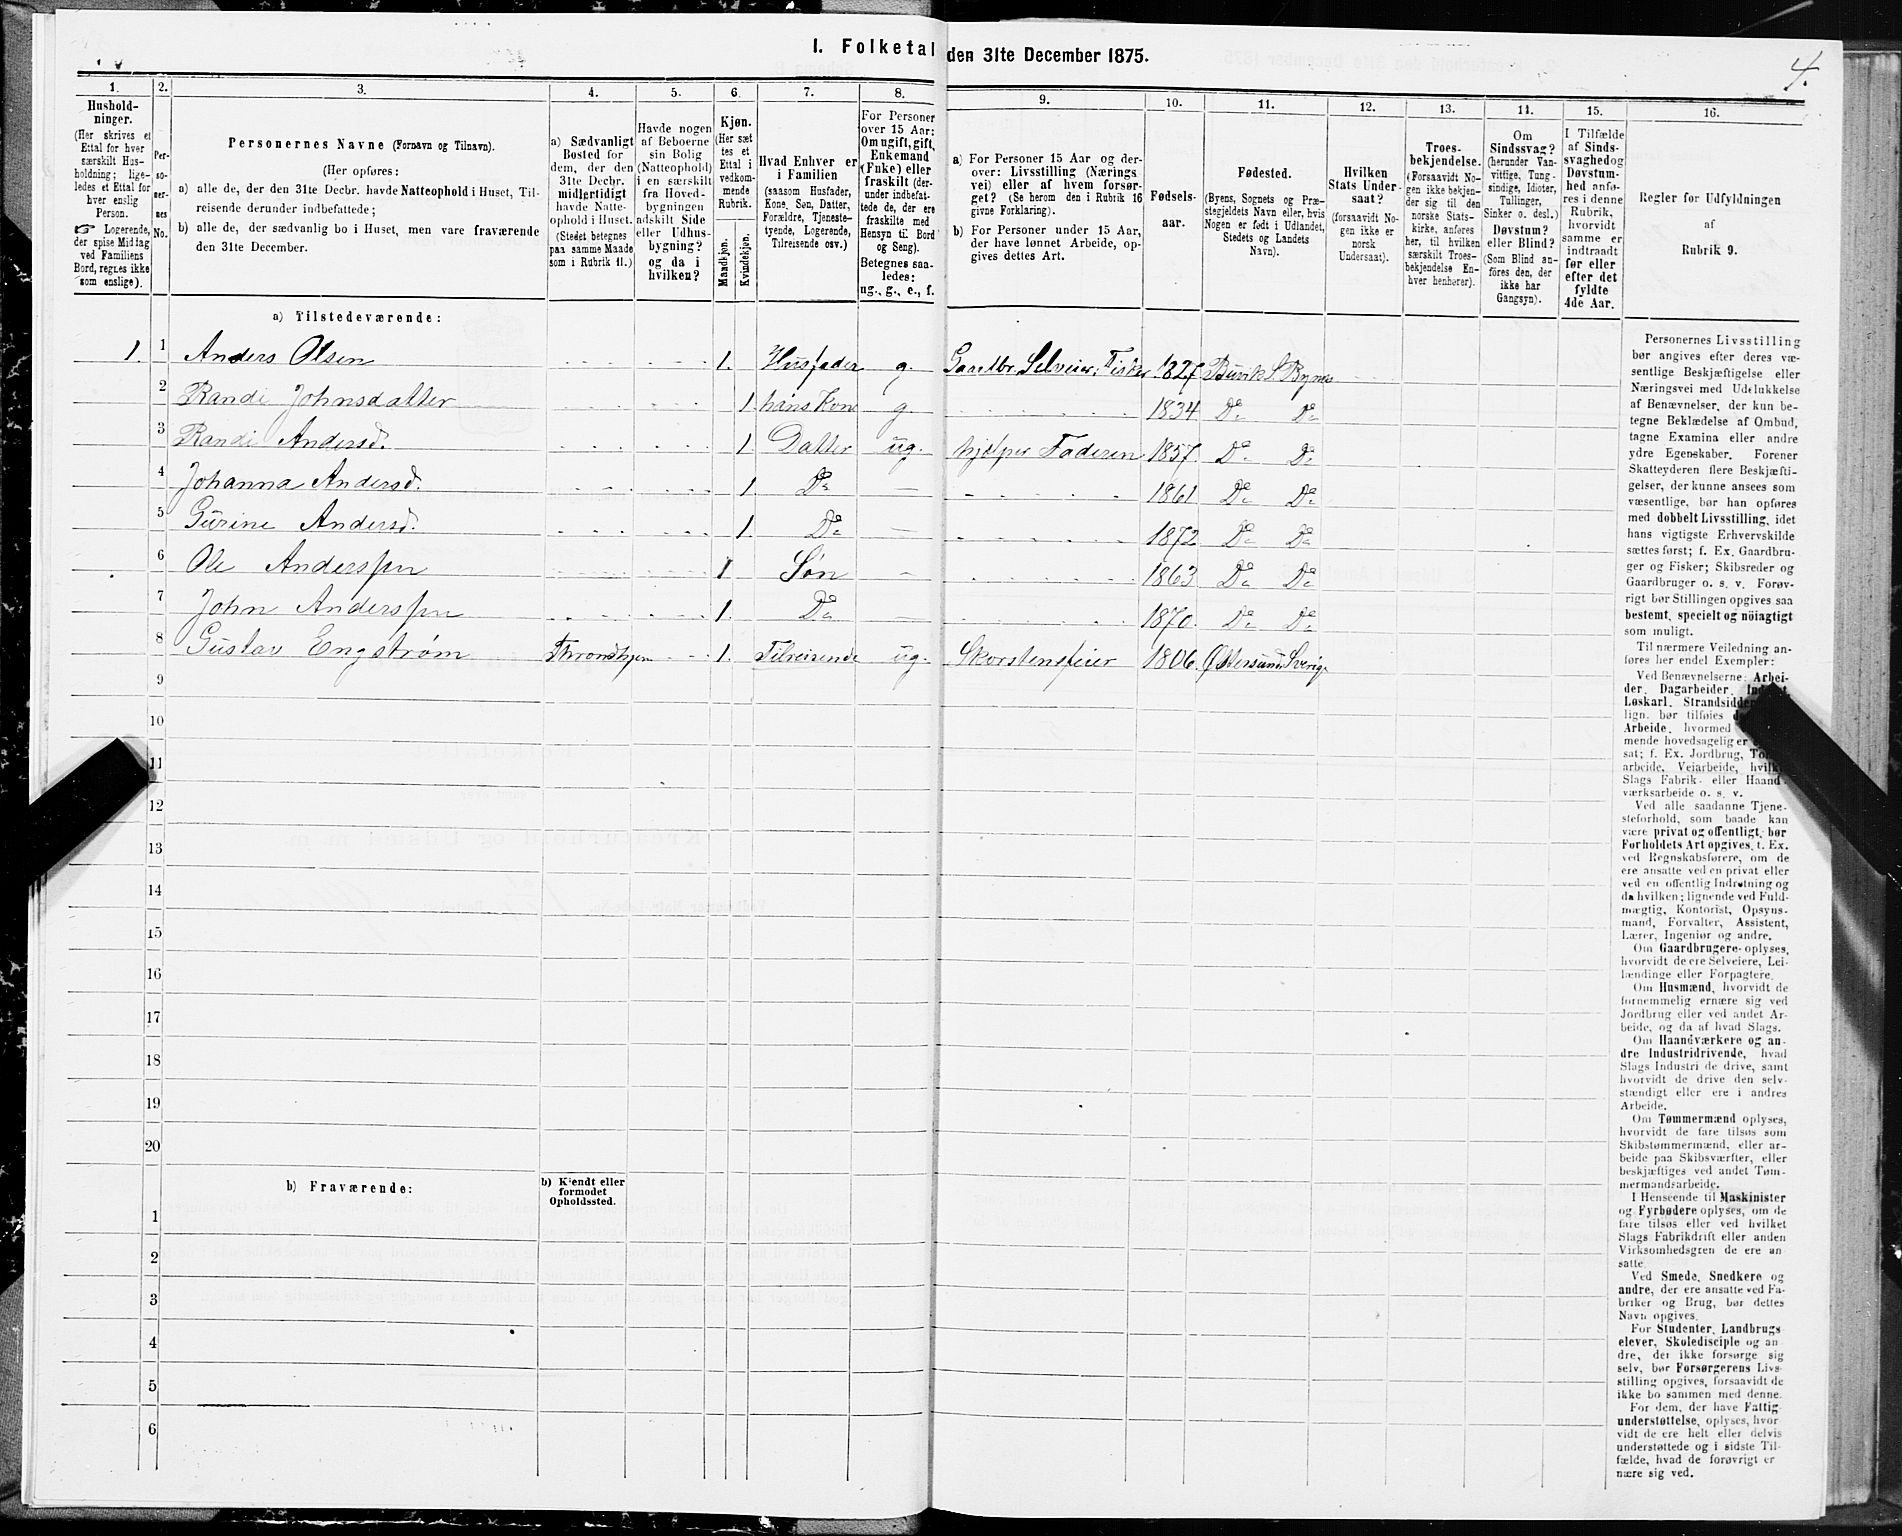 I. Folketal den 31te December 1875.
4.
1.
Hushold-
ninger.
(Her skrives et
Ettal for hver
særskilt Hus-
holdning; lige-
ledes et Ettal for
hver enslig
Person.
☞ Logerende,
der spise Middag
ved Familiens
Bord, regnes ikke
som enslige).
2.
Per-
so-
ner-
nes
No.
3.
Personernes Navne (Fornavn og Tilnavn).
(Her opføres:
a) alle de, der den 31te Decbr. havde Natteophold i Huset, Til-
reisende derunder indbefattede;
b) alle de, der sædvanlig bo i Huset, men vare fraværende
den 31te December.
4.
a) Sædvanligt
Bosted for
dem, der den
31te Decbr.
midlertidigt
havde Natte-
ophold i Huset.
(Stedet betegnes
paa samme Maade
som i Rubrik 11.)
5.
Havde nogen
af Beboerne
sin Bolig
(Natteophold)
i en særskilt
fra Hoved-
bygningen
adskilt Side
eller Udhus-
bygning?
og da i
hvilken?
6.
Kjøn.
(Her sæt
tes et
Ettal i
vedkom-
mende
Rubrik.
Mandkjøn.
Kvindekjøn.
7.
Hvad Enhver er
i Familien
(saasom Husfader,
Kone, Søn, Datter,
Forældre, Tjeneste-
tyende, Logerende,
Tilreisende osv.)
8.
For Personer
over 15 Aar:
Om ugift, gift,
Enkemand
(Enke) eller
fraskilt (der-
under indbefat-
tede de, der ere
fraskilte med
Hensyn til Bord
og Seng).
Betegnes saa-
ledes:
ug., g., e., f.
9.
a) For Personer 15 Aar og der-
over: Livsstilling (Nærings
vei) eller af hvem forsør-
get? (Se herom den i Rubrik 16
givne Forklaring).
b) For Personer under 15 Aar,
der have lønnet Arbeide, op-
gives dettes Art.
10.
Fødsels-
aar.
11.
Fødested.
(Byens, Sognets og Præ-
stegjeldets Navn eller, hvis
Nogen er født i Udlandet,
Stedets og Landets
Navn).
12.
Hvilken
Stats Under-
saat?
(forsaavidt No-
gen ikke er
norsk
Undersaat).
13.
Troes-
bekjendelse.
(Forsaavidt No-
gen ikke bekjen-
der sig til den
norske Stats-
kirke, anføres
her, til hvilken
særskilt Troes-
bekjendelse En-
hver henhører).
14.
Om
Sindssvag?
(herunder Van-
vittige, Tung-
sindige, Idioter,
Tullinger,
Sinker o. desl.)
Døvstum?
eller Blind?
(Som Blind an-
føres den, der
ikke har
Gangsyn).
15.
I Tilfælde
af Sinds-
svaghed og
Døvstum-
hed anfø-
res i denne
Rubrik,
hvorvidt
samme er
indtraadt
før eller
efter det
fyldte
4de Aar.
16.
Regler for Udfyldningen
af
Rubrik 9.
a) Tilstedeværende:
1. 1 Anders Olsen 1. Husfader g. Gaardbr. Selveier, Fisker 1827 Buvik S Bynes
2 Randi Johnsdatter 1 hans Kone g. 1834 Do Do
3 Randi Andersd. 1 Datter ug. hjelper Faderen 1857 Do Do
4 Johanna Andersd. 1 Do 1861 Do Do
5 Gurine Andersd. 1 Do 1872 Do Do
6 Ole Anderssen 1 Søn 1863 Do Do
7 John Anderssen 1. Do 1870. Do Do
8 Gustav Engstrøm Throndhjem 1. Tilreisende ug. Skorstensfeier 1806. Østersund, Sverig.
9
10
11
12
13
14
15
16
17
18
19
20
b) Fraværende:
b) Kjendt eller
formodet
Opholdssted.
1
2
3
4
5
6
Personernes Livsstilling
bør angives efter deres væ-
sentlige Beskjæftigelse eller
Næringsvei med Udelukkelse
af Benævnelser, der kun be-
tegne Beklædelse af Ombud,
tagne Examina eller andre
ydre Egenskaber. Forener
Skatteyderen flere Beskjæfti-
gelser, der kunne ansees som
væsentlige, bør han opføres
med dobbelt Livsstilling, idet
hans vigtigste Erhvervskilde
sættes først; f. Ex. Gaardbru-
ger og Fisker; Skibsreder og
Gaardbruger o. s. v. Forøv-
rigt bør Stillingen opgives saa
bestemt, specielt og nöiagtigt
som muligt.
Til nærmere Veiledning an-
føres her endel Exempler:
Ved Benævnelserne: Arbei-
der, Dagarbeider,
Løskarl, Strandsidder
lign. bør tilføies
Arbeide, hvormed
mende hovedsagelig er
sat; f. Ex. Jordbrug,
arbeide, Veiarbeide,
Slags Fabrik- eller Haand-
værksarbeide o. s. v.
Ved alle saadanne Tjene-
steforhold, som baade kan
være privat og offentligt, bør
Forholdets Art opgives, f. Ex.
ved Regnskabsførere, om de
ere ansatte ved en privat eller
ved en offentlig Indretning og
da hvilken; lignende ved Fuld-
mægtig, Kontorist, Opsyns-
mand, Forvalter, Assistent,
Lærer, Ingeniør og andre.
Om Gaardbrugere oplyses,
hvorvidt de ere Selveiere, Lei-
lændinge eller Forpagtere.
Om Husmænd, hvorvidt de
fornemmelig ernære sig ved
Jordbrug eller ved andet Ar-
beide, og da af hvad Slags.
Om Haandværkere og an-
dre Industridrivende, hvad
Slags Industri de drive, samt
hvorvidt de drive den selv-
stændigt eller ere i andres
Arbeide.
Om Tømmermænd oplyses,
hvorvidt de fare tilsøs som
Skibstømmermænd, eller ar-
beide paa Skibsværfter, eller
beskjæftiges ved andet Tøm-
mermandsarbeide.
I Henseende til Maskinister
og Fyrbødere oplyses, om de
fare tilsøs eller ved hvilket
Slags Fabrikdrift eller anden
Virksomhedsgren de ere an-
satte.
Ved Smede, Snedkere og
andre, der ere ansatte ved Fa-
briker og Brug, bør dettes
Navn opgives.
For Studenter, Landbrugs-
elever, Skoledisciple og an-
dre, der ikke forsørge sig
selv, bør Forsørgerens Livs-
stilling opgives, forsaavidt de
ikke bo sammen med denne.
For dem, der have Fattig-
understøttelse, oplyses, hvor-
vidt de ere helt eller delvis
understøttede og i sidste Til-
fælde, hvad de forøvrigt er
nære sig ved.